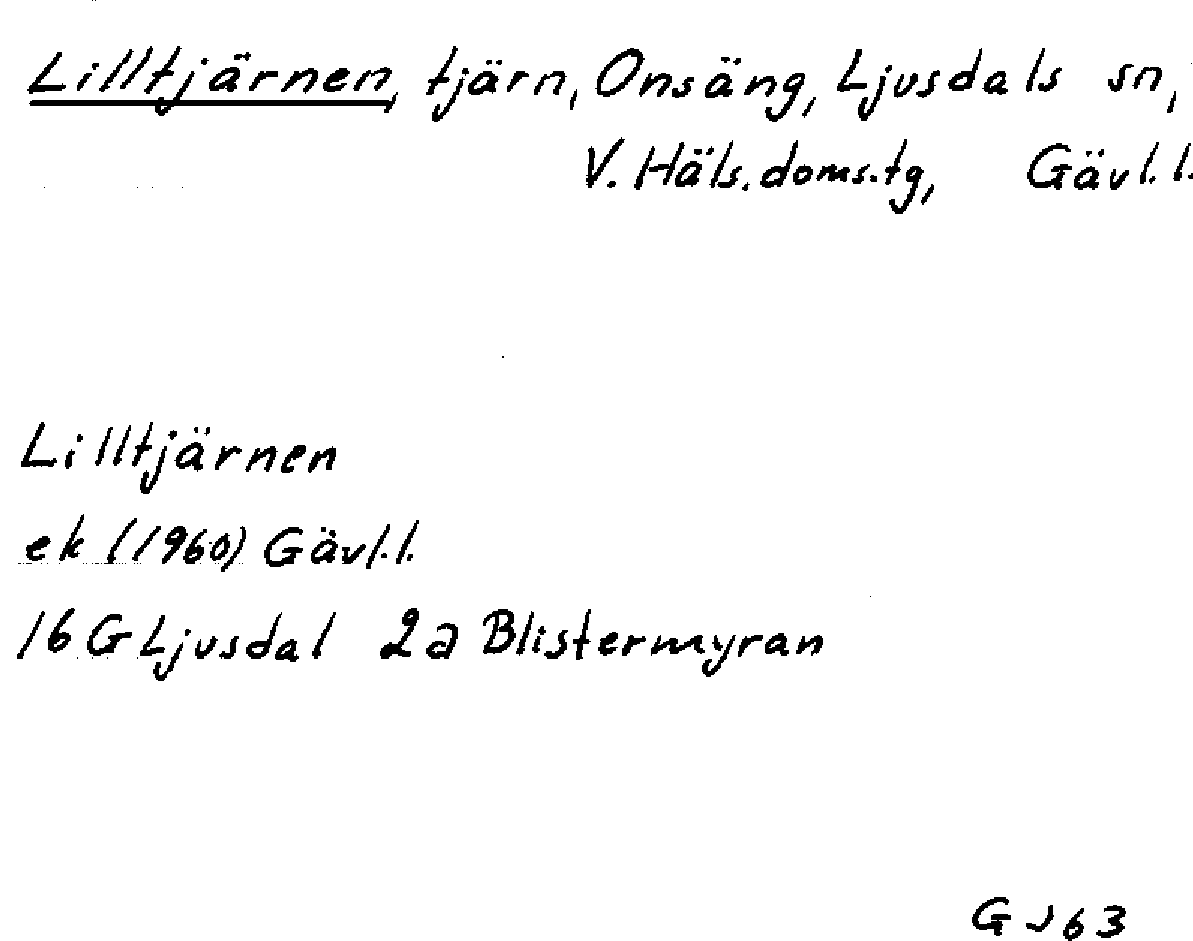 Lilltjärnen, tjärn, Onsäng, Ljusdals sn,
V. Häls. doms.tg, Gävl.l.
Lilltjärnen
ek (1960) Gävl.l.
16 G Ljusdal 2a Blistermyran
GJ63